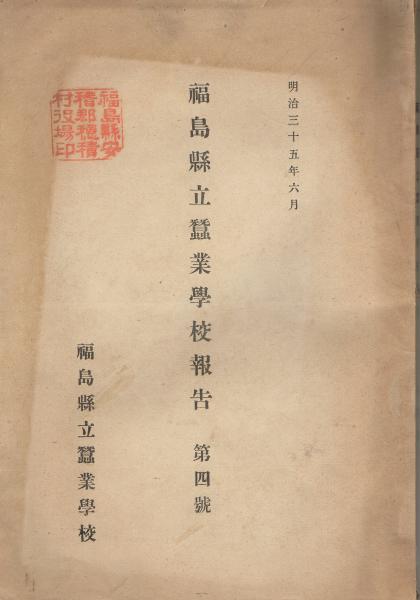 明治三十五年六月
福島縣立蠶業學校報告 第四號
福島縣立蠶業學校
福島縣安
積郡穂積
村役場印